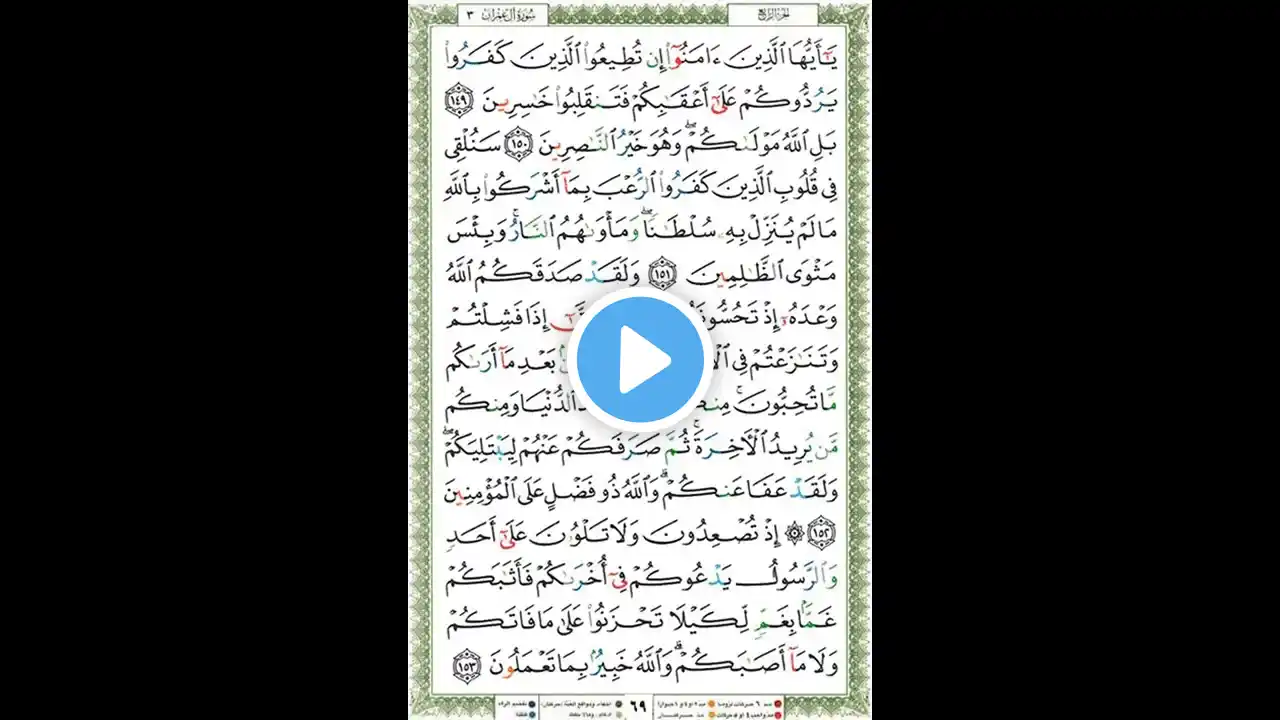 الجزء الرابع
سورة آل عمران ٣
يَٰٓأَيُّهَا ٱلَّذِينَ ءَامَنُوٓا۟ إِن تُطِيعُوا۟ ٱلَّذِينَ كَفَرُوا۟
يَرُدُّوكُمْ عَلَىٰٓ أَعْقَٰبِكُمْ فَتَنقَلِبُوا۟ خَٰسِرِينَ ١٤٩
بَلِ ٱللَّهُ مَوْلَىٰكُمْ ۖ وَهُوَ خَيْرُ ٱلنَّٰصِرِينَ ١٥٠ سَنُلْقِى
فِى قُلُوبِ ٱلَّذِينَ كَفَرُوا۟ ٱلرُّعْبَ بِمَآ أَشْرَكُوا۟ بِٱللَّهِ
مَا لَمْ يُنَزِّلْ بِهِۦ سُلْطَٰنًا ۖ وَمَأْوَىٰهُمُ ٱلنَّارُ ۚ وَبِئْسَ
مَثْوَى ٱلظَّٰلِمِينَ ١٥١ وَلَقَدْ صَدَقَكُمُ ٱللَّهُ
وَعْدَهُۥٓ إِذْ إِذَا فَشِلْتُمْ
وَتَنَٰزَعْتُمْ فِى بَعْدِ مَآ أَرَىٰكُم
مَّا تُحِبُّونَ ۚ ٱلدُّنْيَا وَمِنكُم
مَّن يُرِيدُ ٱلْءَاخِرَةَ ۚ ثُمَّ صَرَفَكُمْ عَنْهُمْ لِيَبْتَلِيَكُمْ ۖ
وَلَقَدْ عَفَا عَنكُمْ ۗ وَٱللَّهُ ذُو فَضْلٍ عَلَى ٱلْمُؤْمِنِينَ
١٥٢ ۞ إِذْ تُصْعِدُونَ وَلَا تَلْوُۥنَ عَلَىٰٓ أَحَدٍ
وَٱلرَّسُولُ يَدْعُوكُمْ فِىٓ أُخْرَىٰكُمْ فَأَثَٰبَكُمْ
غَمًّۢا بِغَمٍّ لِّكَيْلَا تَحْزَنُوا۟ عَلَىٰ مَا فَاتَكُمْ
وَلَا مَآ أَصَٰبَكُمْ ۗ وَٱللَّهُ خَبِيرٌۢ بِمَا تَعْمَلُونَ ١٥٣
٦٩